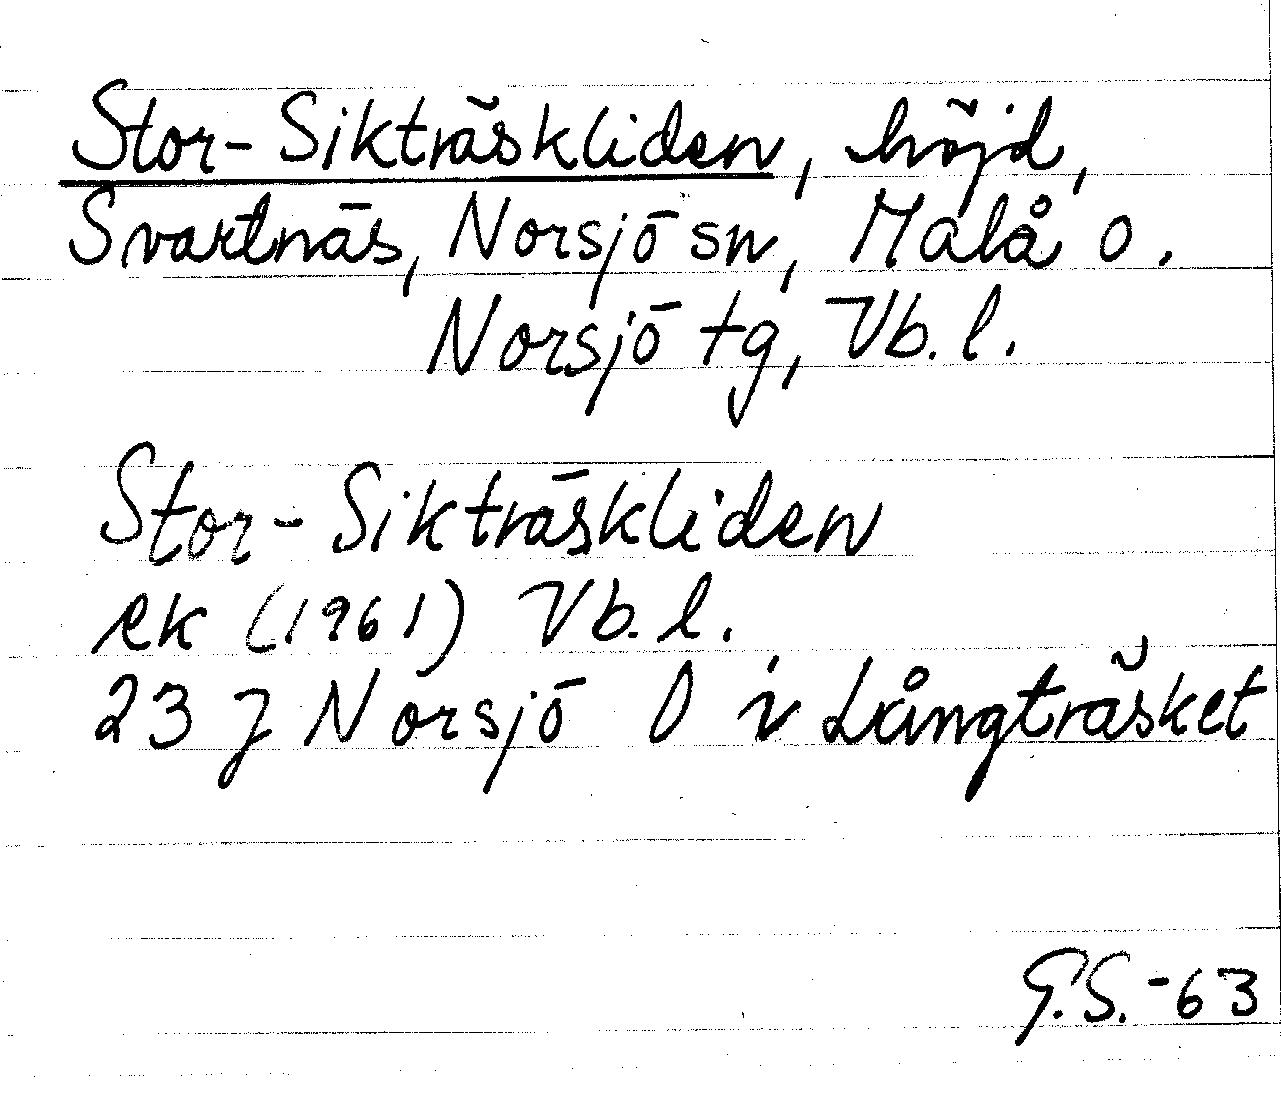 Stor-Sikträskliden, höjd,
Svartnäs, Norsjö sn, Malå o.
Norsjö tg, Vb. l.
Stor-Sikträskliden
ek (1961) Vb. l.
23 J Norsjö O i Långträsket
G.S. -63